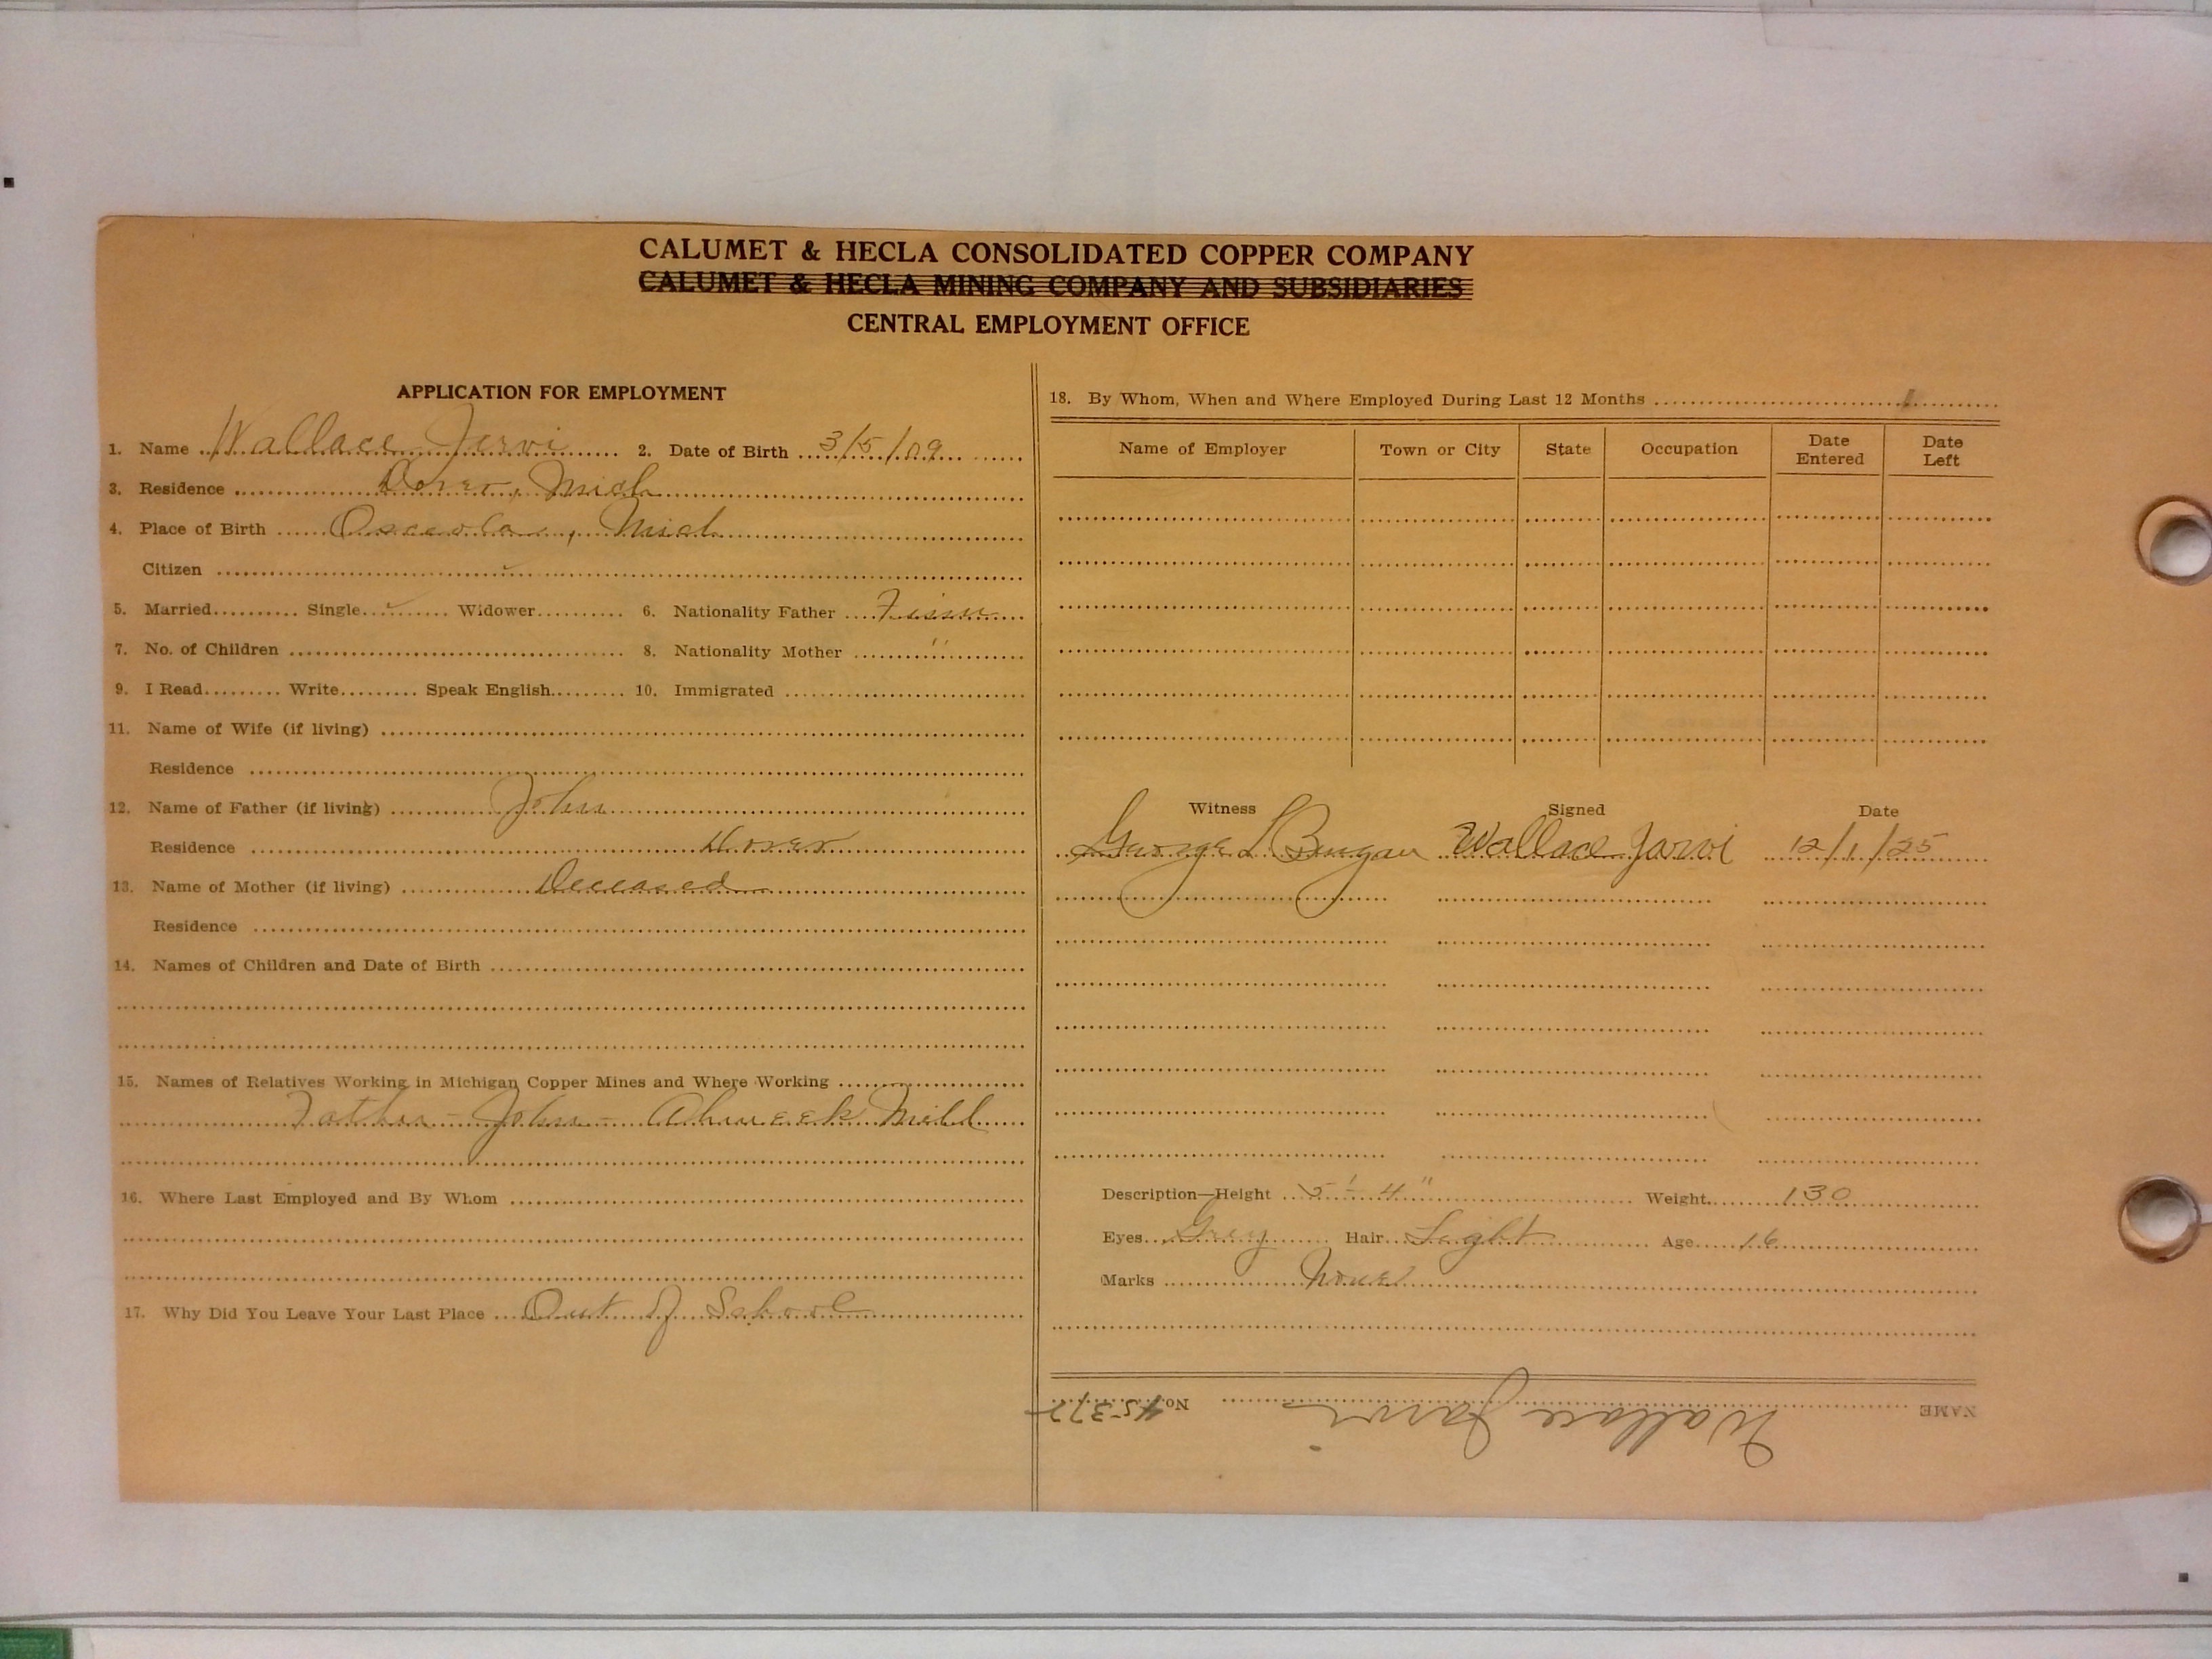 CALUMET & HECLA CONSOLIDATED COPPER COMPANY
CALUMET & HECLA MINING COMPANY AND SUBSIDIARIES
CENTRAL EMPLOYMENT OFFICE
APPLICATION FOR EMPLOYMENT
1. Name Wallace Jarvi 2. Date of Birth 3/5/09
3. Residence Dover, Mich
4. Place of Birth Osceola, Mich
Citizen
5. Married Single ✓ Widower 6. Nationality Father Finn
7. No. of Children 8. Nationality Mother "
9. I Read Write Speak English 10. Immigrated
11. Name of Wife (if living)
Residence
12. Name of Father (if living) John
Residence Dover
13. Name of Mother (if living) Deceased
Residence
14. Names of Children and Date of Birth
15. Names of Relatives Working in Michigan Copper Mines and Where Working
Father - John - Ahmeek Mill
16. Where Last Employed and By Whom
17. Why Did You Leave Your Last Place Out of School
18. By Whom, When and Where Employed During Last 12 Months
Name of Employer Town or City State Occupation Date Entered Date Left
Witness Signed Date
George L Wallace Jarvi 12/1/25
Description—Height 5'-4" Weight 130
Eyes Grey Hair Light Age 16
Marks None
NAME Wallace Jarvi No. 45377